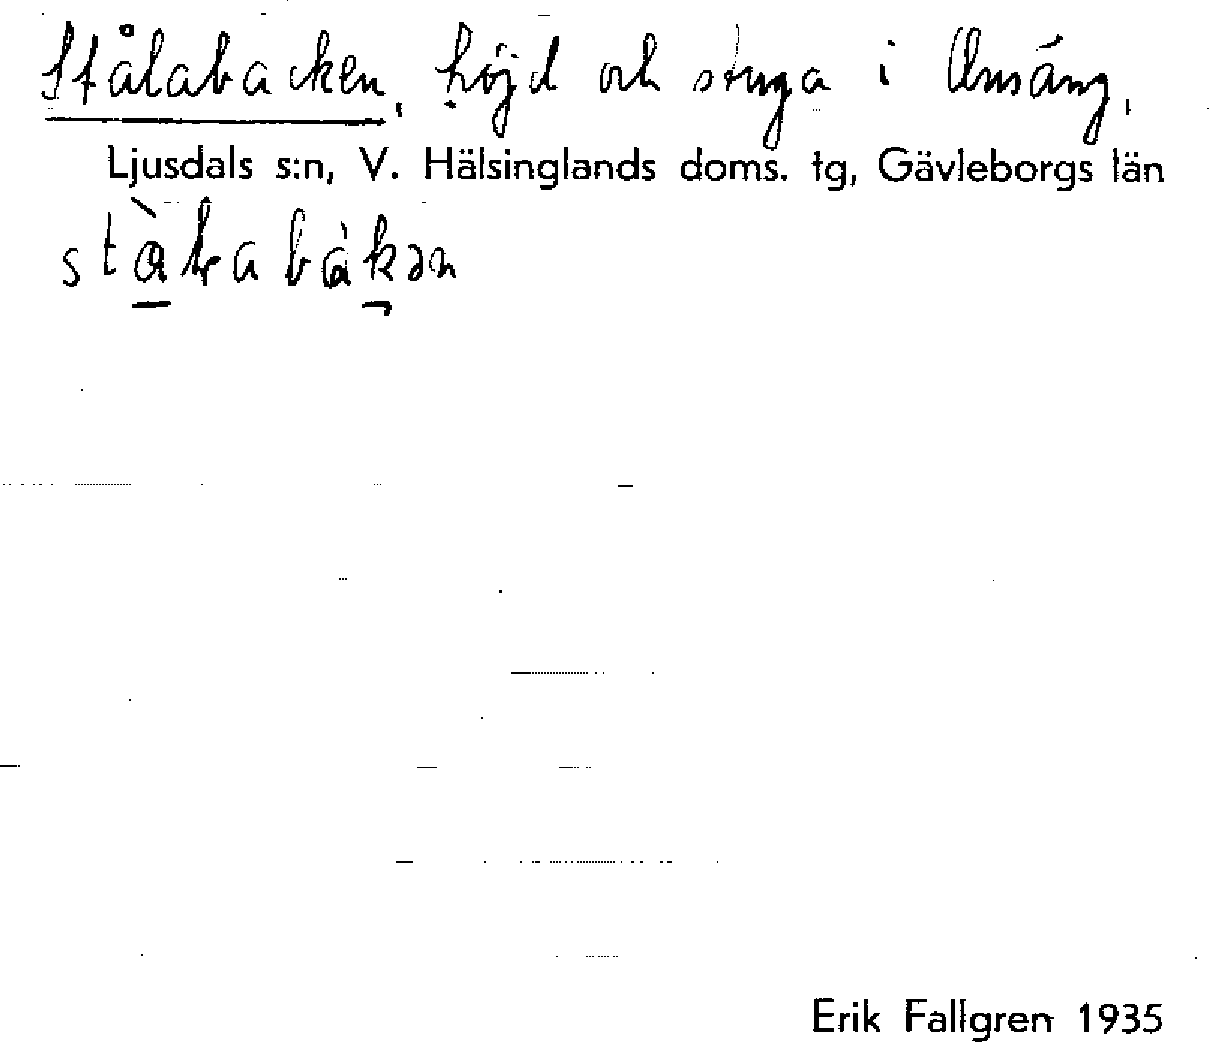 Stålabacken, höjd och stuga i Onsäng,
Ljusdals s:n, V. Hälsinglands doms. tg, Gävleborgs län
Erik Fallgren 1935